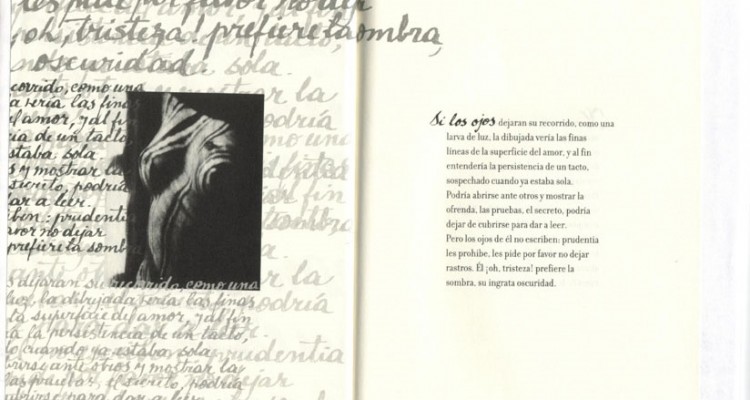 les pide por favor no dejar
¡oh, tristeza! prefiere la sombra,
oscuridad.
sola.
recorrido, como una
a vería las finas
el amor, y al fin
cia de un tacto,
estaba sola.
y mostrar la
secreto, podría
dar a leer.
prudentia
avor no dejar
prefiere la sombra
s dejaran su recorrido, como una
luz, la dibujada vería las finas
la superficie del amor, y al fin
a la persistencia de un tacto,
do cuando ya estaba sola.
abrirse ante otros y mostrar la
las pruebas, el secreto, podría
cubrirse para dar a leer.
Si los ojos dejaran su recorrido, como una
larva de luz, la dibujada vería las finas
líneas de la superficie del amor, y al fin
entendería la persistencia de un tacto,
sospechado cuando ya estaba sola.
Podría abrirse ante otros y mostrar la
ofrenda, las pruebas, el secreto, podría
dejar de cubrirse para dar a leer.
Pero los ojos de él no escriben: prudentia
les prohíbe, les pide por favor no dejar
rastros. Él ¡oh, tristeza! prefiere la
sombra, su ingrata oscuridad.